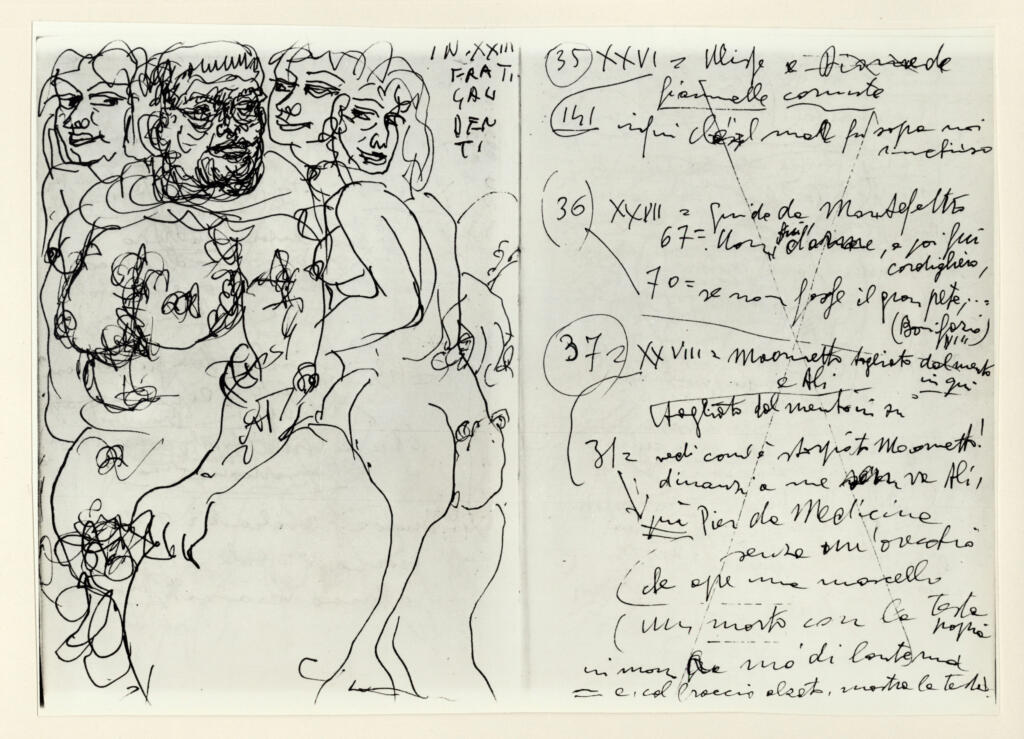 IN. XXIII
FRATI.
GAU
DEN
TI
35 XXVI = Ulisse e Diomede
fiammelle cornute
141 infin che'l mar fu sopra noi
rinchiuso
36 XXVII = Guido da Montefeltro
67 = Uom d'arme, e poi fui
cordigliero,
70 = se non fosse il gran prete,...
(Bonifazio VIII)
37 = XXVIII = Maometto tagliato dal mento
e Alì in giù
tagliato dal mento in su
31 = vedi com'è storpiato Maometto!
dinanzi a me sen va Alì,
più Pier da Medicina
senza un'orecchia
che apre una
un morto con la testa
propria
in mano a mo' di lanterna
= e, col braccio alzato, mostra la testa.